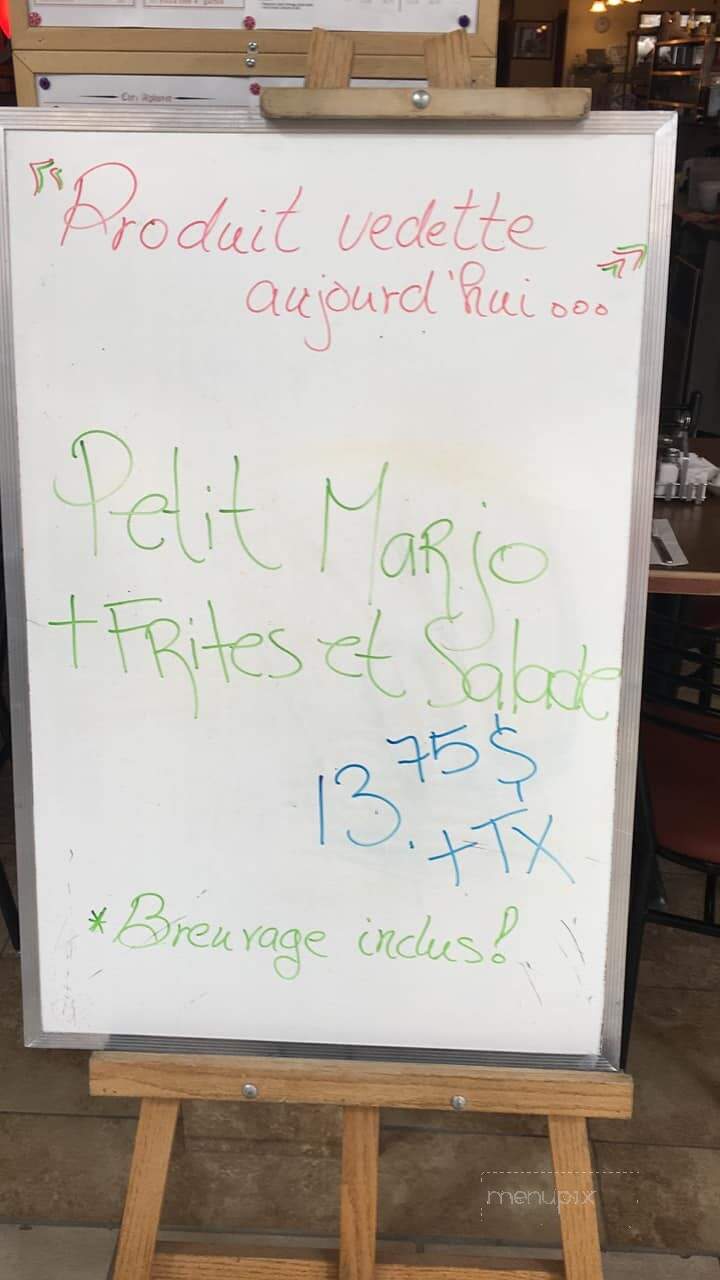 « Produit vedette
aujourd'hui... »
Petit Marjo
+ Frites et Salade
13.75$
+TX
* Breuvage inclus!
menupix